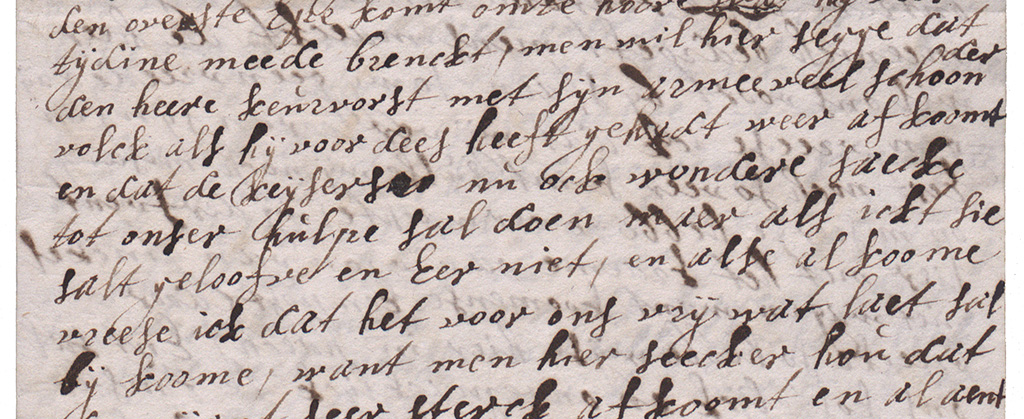 den overste Eyte komt omte hoore
tydine meede brenckt, men wil hier segge dat
den heere keurvorst met syn armee veel schoonder
volck als hy voor dees heeft gehadt weer af koomt
en dat de keyserse nu ock wondere saecke
tot onser hulpe sal doen maer als ickt sie
salt geloofve en Eer niet, en alse al koome
vreese ick dat het voor ons vry wat laet sal
by koome, want men hier seecker hou dat
seer sterck af koomt en al aent